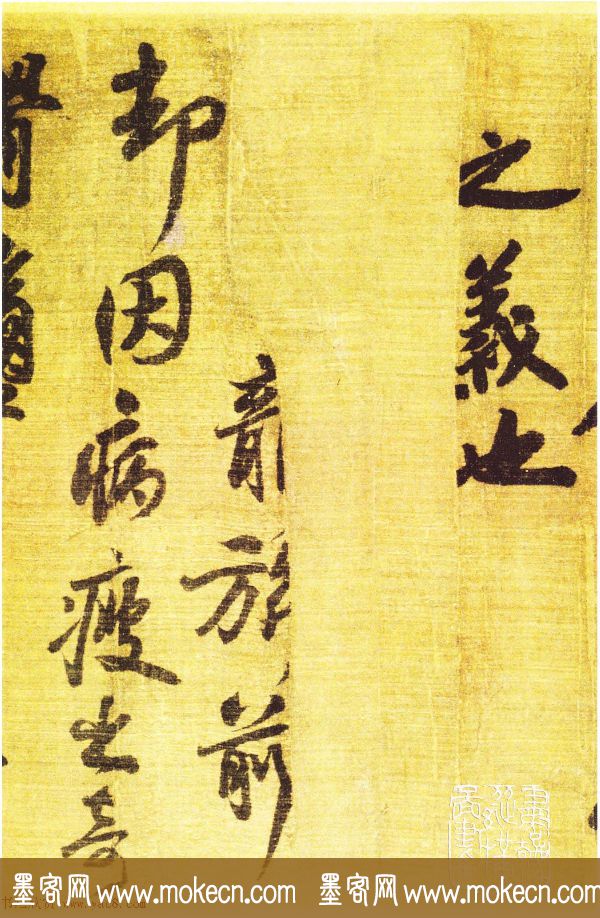 之義也
龍旂前
却因病瘦出奇
骨鹽
墨客网 www.mokecn.com 墨客网 www.mokecn.com